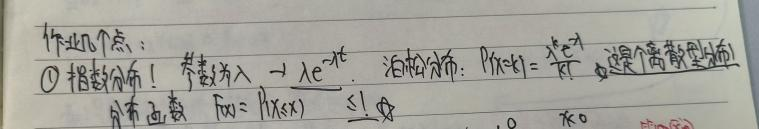 作业几个点：
① 指数分布！ 参数为λ → λe^{-λt}. 泊松分布：P(X=k)=\frac{λ^k e^{-λ}}{k!} ☆这是个离散型分布！
分布函数 F(x)=P(X≤x) ≤1 ☆
0 x<0